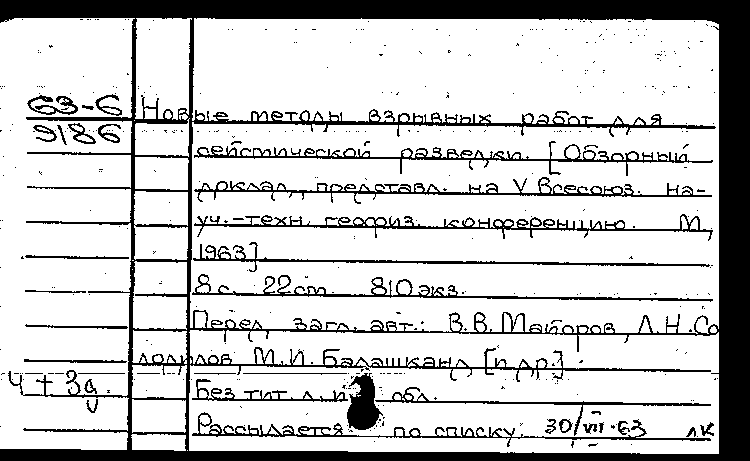 63-6
9186
Новые методы взрывных работ для
сейсмической разведки. [Обзорный
доклад, представл. на V Всесоюз. на-
уч.-техн. геофиз. конференцию. М.,
1963]
8 с. 22 cm 810 экз.
Перед загл. авт.: В.В. Майоров, Л.Н. Со
лодилов, М.И. Балашканд [и др.]
4 + 3д.
Без тит. л. и обл.
Рассылается по списку. 30/VII-63 лк